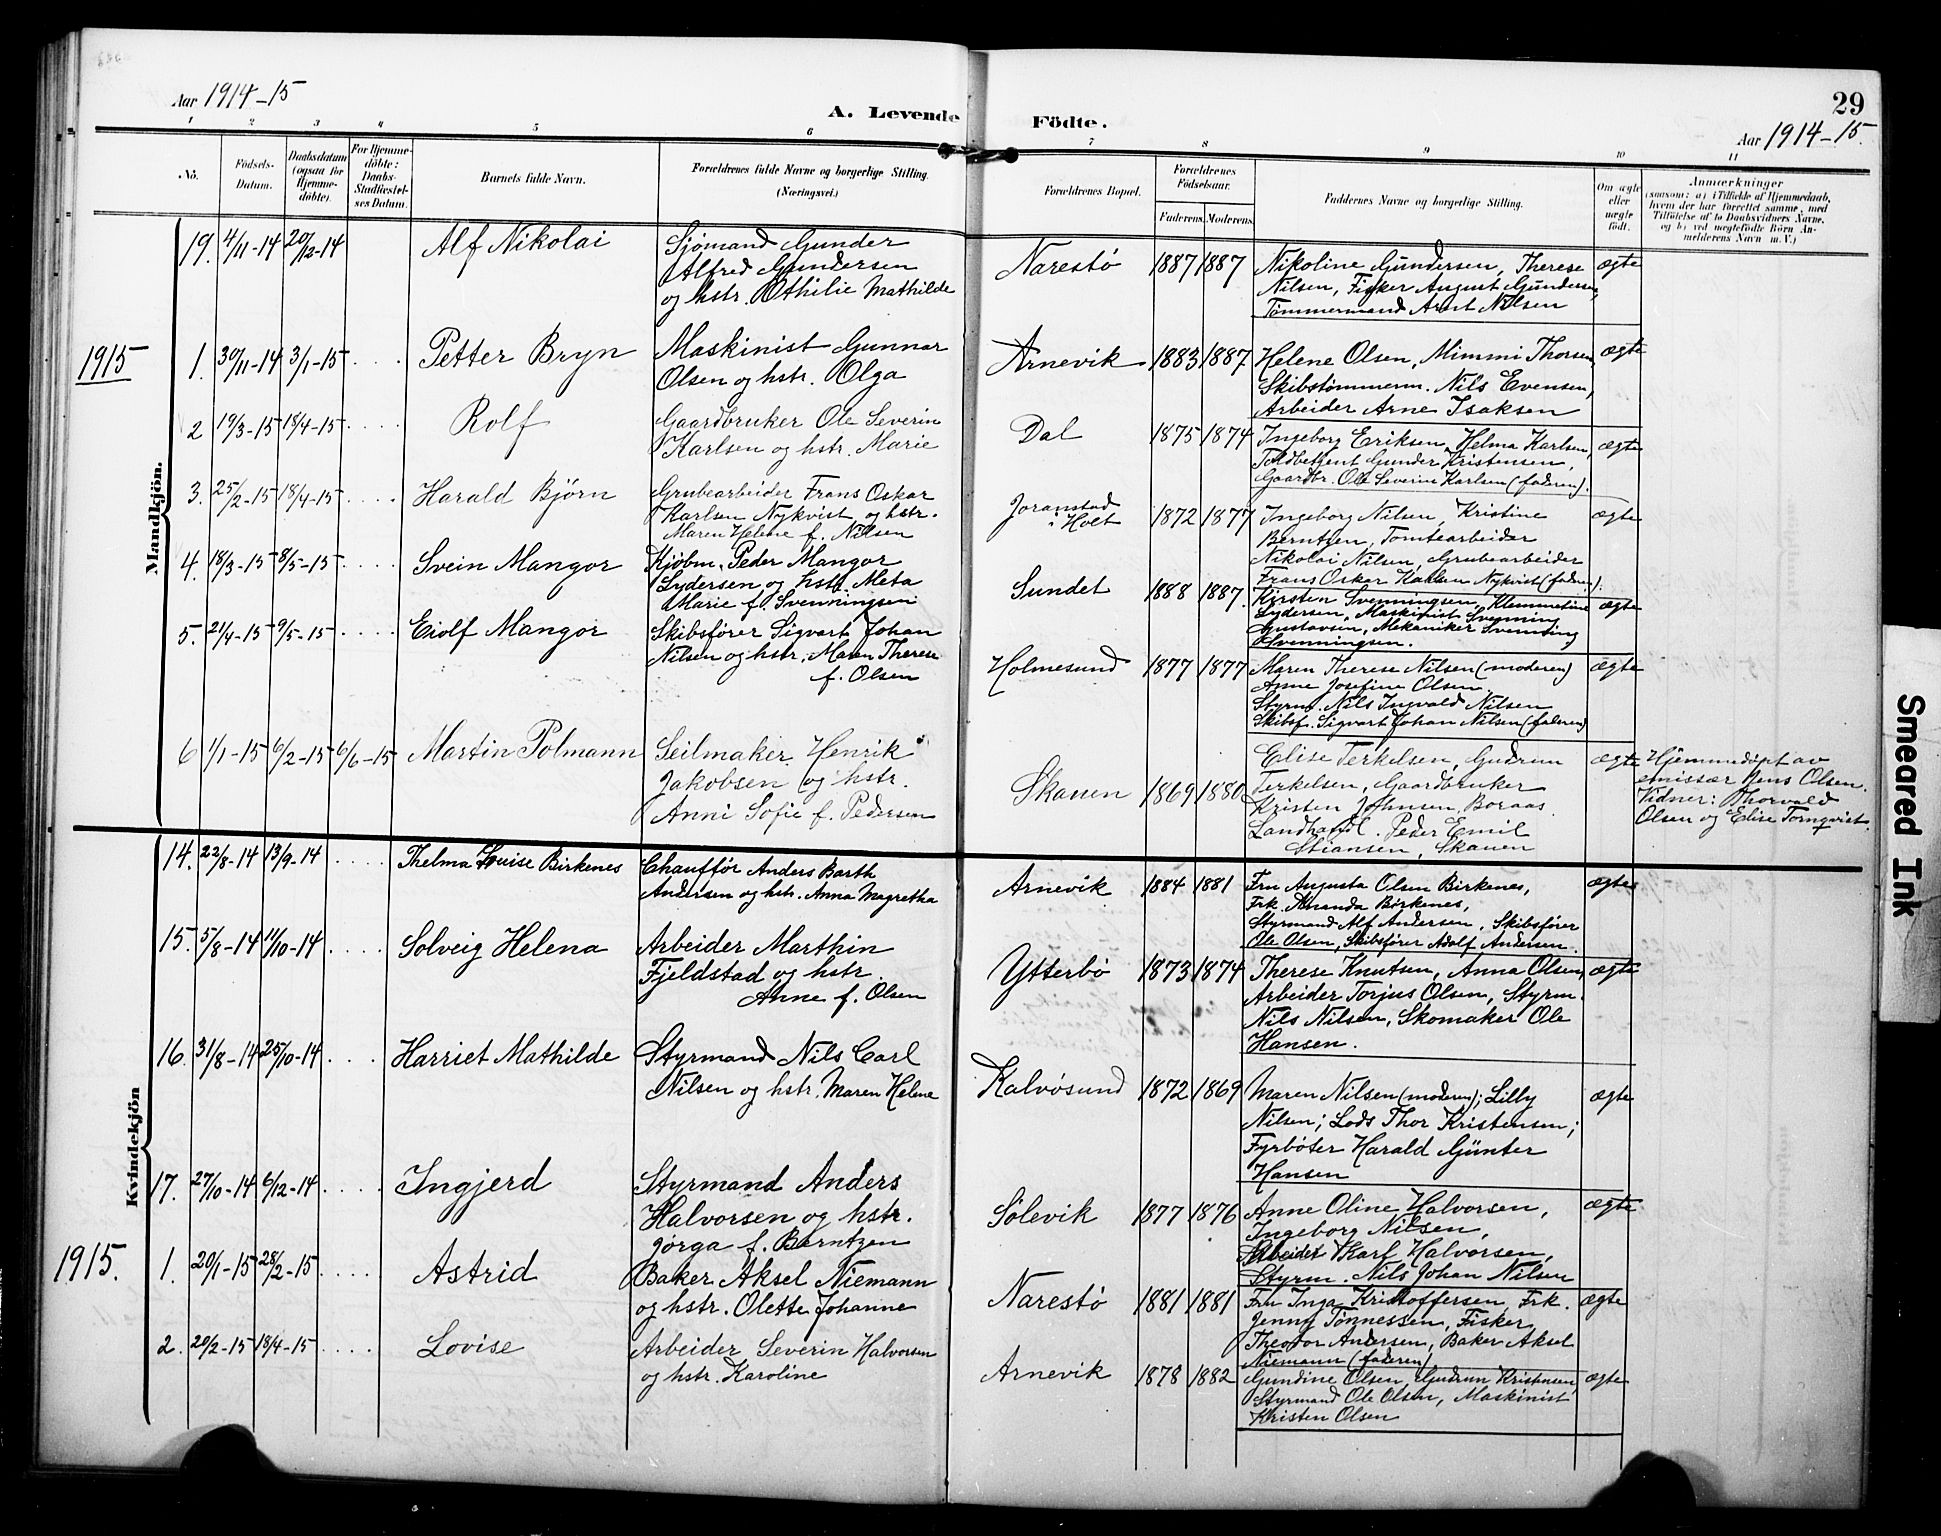 Aar 1914-15
A. Levende Födte.
29
Aar 1914-15.
1 2 3 4 5 6 7 8 9 10 11
No.
Födsels-
Datum.
Daabsdatum
(ogsaa for
Hjemme-
döbte).
For Hjemme-
döbte:
Daabs-
Stadfæstel-
ses Datum.
Barnets fulde Navn.
Forældrenes fulde Navne og borgerlige Stilling.
(Næringsvei.)
Forældrenes Bopæl.
Forældrenes
Födselsaar.
Faderens. Moderens.
Faddernes Navne og borgerlige Stilling.
Om ægte
eller
uægte
födt.
Anmærkninger
(saasom: a) i Tilfælde af Hjemmedaab,
hvem der har forrettet samme, med
Tilföielse af to Daabsvidners Navne,
og b) ved uægtefödte Börn An-
melderens Navn m. V.)
Mandkjön.
19. 4/11-14 20/12-14 Alf Nikolai
Sjømand Gunder
Alfred Gundersen
og hstr. Othilie Mathilde
Narestø 1887 1887
Nikoline Gundersen, Therese
Nilsen, Fisker August Gundersen,
Tømmermand Arnt Nilsen
ægte
1915
1. 30/11-14 3/1-15 .... Petter Bryn
Maskinist Gunnar
Olsen og hstr. Olga
Arnevik 1883 1887
Helene Olsen, Mimmi Thorsen,
Skibstømmerm. Nils Evensen,
Arbeider Arne Isaksen
ægte
2 19/3-15 18/4-15 .... Rolf
Gaardbruker Ole Severin
Karlsen og hstr. Marie
Dal 1875 1874
Ingeborg Eriksen, Helma Karlsen,
Toldbetjent Gunder Kristensen,
Gaardbr. Ole Severin Karlsen (faderen).
ægte
3. 25/2-15 18/4-15 .... Harald Bjørn
Grubearbeider Frans Oskar
Karlsen Nykvist og hstr.
Maren Helene f. Nilsen
Joranstad
i Holt 1872 1877
Ingeborg Nilsen, Kristine
Berntzen, Tomtearbeider
Nikolai Nilsen, Grubearbeider
Frans Oskar Karlsen Nykvist (faderen).
ægte
4. 18/3-15 8/5-15 .... Svein Mangor
Kjøbm. Peder Mangor
Lydersen og hstr. Meta
Marie f. Svenningsen
Sundet 1888 1887.
Kirsten Svenningsen, Klemmetine
Lydersen, Maskinist Svenning
Gustavsen, Mekaniker Svenning
Svenningsen.
ægte
5. 21/4-15 9/5-15 .... Eiolf Mangor
Skibsfører Sigvart Johan
Nilsen og hstr. Maren Therese
f. Olsen
Holmesund 1877 1877
Maren Therese Nilsen (moderen)
Anne Josefine Olsen
Styrm. Nils Ingvald Nilsen
Skibsf. Sigvart Johan Nilsen (faderen)
ægte
6 1/1-15 6/2-15 6/6-15 Martin Polmann
Seilmaker Henrik
Jakobsen og hstr.
Anni Sofie f. Pedersen
Skauen 1869 1880
Elise Terkelsen, Gudrun
Terkelsen, Gaardbruker
Kristen Johnsen, Boraas
Landhandl. Peder Emil
Stiansen, Skauen
ægte
Hjemmedøpt av
emissær Jens Olsen.
Vidner: Thorvald
Olsen og Elise Tornqvist.
Kvindekjön
14. 22/8-14 13/9-14 .... Thelma Louise Birkenes
Chauffør Anders Barth
Andersen og hstr. Anna Magretha
Arnevik 1884 1881
Fru Augusta Olsen Birkenes,
Frk. Amanda Birkenes,
Styrmand Alf Andersen, Skibsfører
Ole Olsen, Skibsfører Adolf Andersen.
ægte
15. 5/8-14 11/10-14 .... Solveig Helena
Arbeider Marthin
Fjeldstad og hstr.
Anne f. Olsen
Ytterbø 1873 1874
Therese Knutsen, Anna Olsen,
Arbeider Torjus Olsen, Styrm.
Nils Nilsen, Skomaker Ole
Hansen.
ægte
16. 31/8-14 25/10-14 .... Harriet Mathilde
Styrmand Nils Carl
Nilsen og hstr. Maren Helene
Kalvøsund 1872 1869
Maren Nilsen (moderen); Lilly
Nilsen; Lods Thor Kristensen;
Fyrbøter Harald Günter
Hansen
ægte
17. 27/10-14 6/12-14 .... Ingjerd
Styrmand Anders
Halvorsen og hstr.
Jørga f. Berntzen
Sølevik 1877 1876
Anne Oline Halvorsen,
Ingeborg Nilsen,
Arbeider Karl Halvorsen,
Styrm. Nils Johan Nilsen
ægte
1915.
1. 20/1-15 28/2-15 .... Astrid
Baker Aksel Niemann
og hstr. Olette Johanne
Narestø 1881 1881
Fru Inga Kristoffersen, Frk.
Jenny Tønnessen, Fisker
Theodor Andersen, Baker Aksel
Niemann (faderen)
ægte
2. 20/2-15 18/4-15 .... Lovise
Arbeider Severin Halvorsen
og hstr. Karoline
Arnevik 1878 1882
Gundine Olsen, Gudrun Kristensen,
Styrmand Ole Olsen, Maskinist
Kristen Olsen
ægte
Smeared Ink